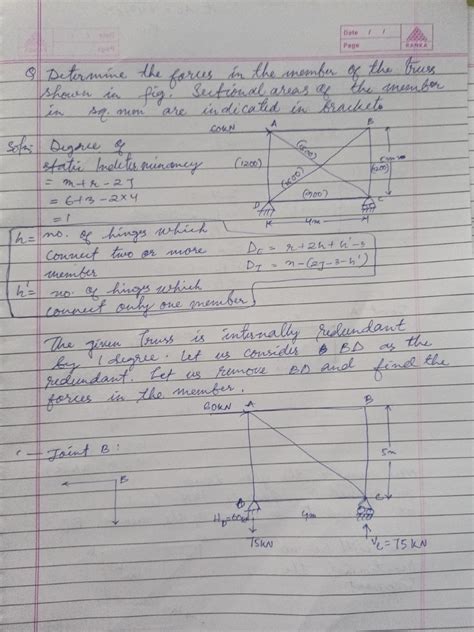 Date / /
Page
RANKA
Q Determine the forces in the member of the truss
shown in fig. Sectional areas of the member
in sq. mm are indicated in brackets
60KN A B
Soln: Degree of
static Indeterminancy
= m+r-2j
= 6+3-2×4
= 1
(1200) (1500) (1500) 5m (1200)
D (900) C
4m
h = no. of hinges which
connect two or more
member
h' = no. of hinges which
connect only one member
De = r+2h+h'-3
DI = n-(2j-3-h')
The given truss is internally redundant
by 1 degree. Let us consider BD as the
redundant. Let us remove BD and find the
forces in the member.
60KN A B
Joint B:
B
5m
D C
4m
75KN
Vc = 75KN